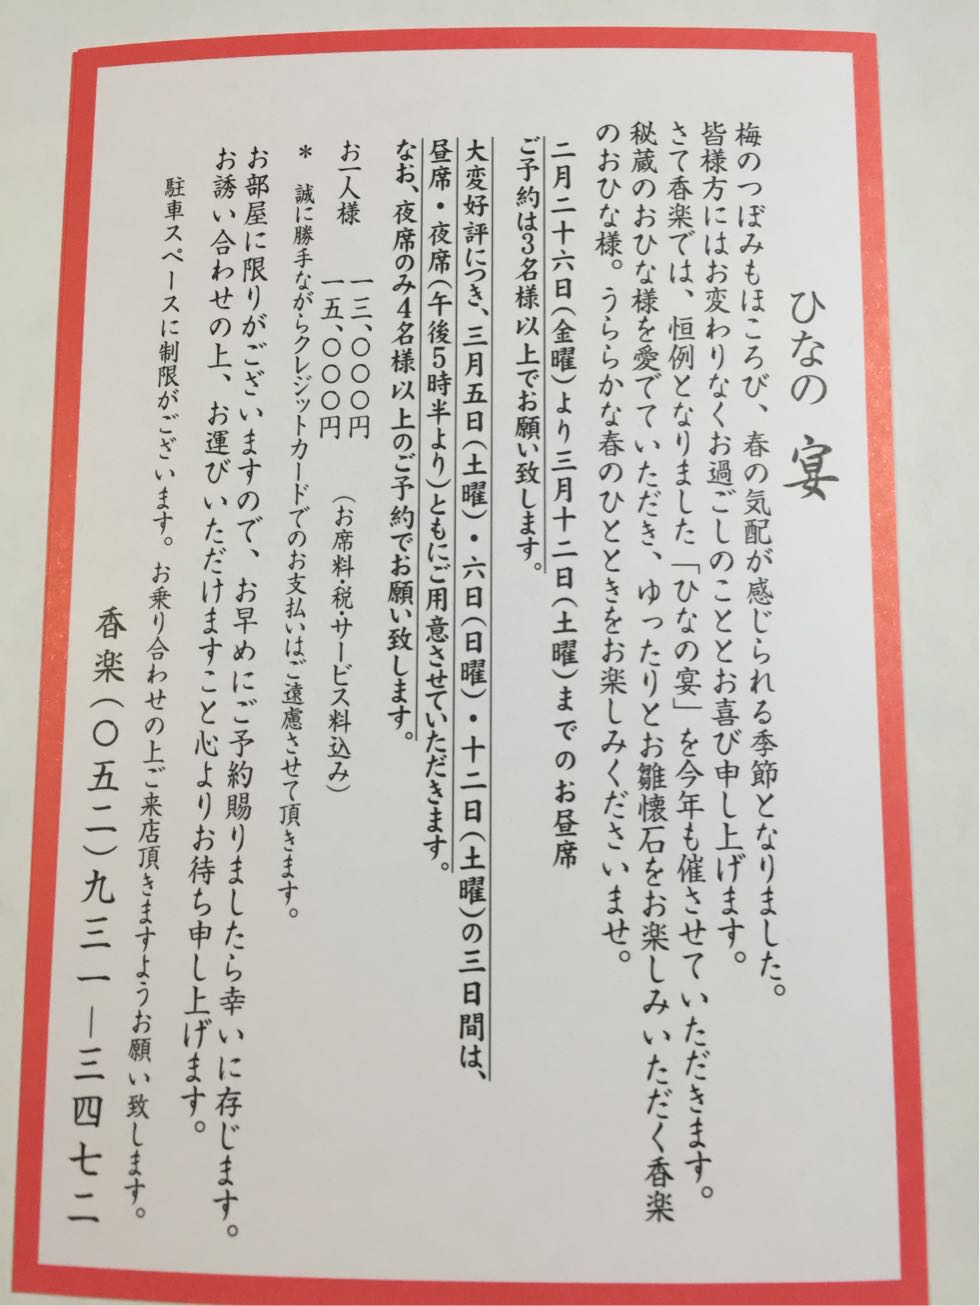 ひなの 宴
梅のつぼみもほころび、春の気配が感じられる季節となりました。
皆様方にはお変わりなくお過ごしのこととお喜び申し上げます。
さて香楽では、恒例となりました「ひなの宴」を今年も催させていただきます。
秘蔵のおひな様を愛でていただき、ゆったりとお雛懐石をお楽しみいただく香楽
のおひな様。うららかな春のひとときをお楽しみくださいませ。
二月二十六日(金曜)より三月十二日(土曜)までのお昼席
ご予約は3名様以上でお願い致します。
大変好評につき、三月五日(土曜)・六日(日曜)・十二日(土曜)の三日間は、
昼席・夜席(午後5時半より)ともにご用意させていただきます。
なお、夜席のみ4名様以上のご予約でお願い致します。
お一人様 一三、〇〇〇円
一五、〇〇〇円 (お席料・税・サービス料込み)
* 誠に勝手ながらクレジットカードでのお支払いはご遠慮させて頂きます。
お部屋に限りがございますので、お早めにご予約賜りましたら幸いに存じます。
お誘い合わせの上、お運びいただけますこと心よりお待ち申し上げます。
駐車スペースに制限がございます。お乗り合わせの上ご来店頂きますようお願い致します。
香楽(〇五二)九三一―三四七二